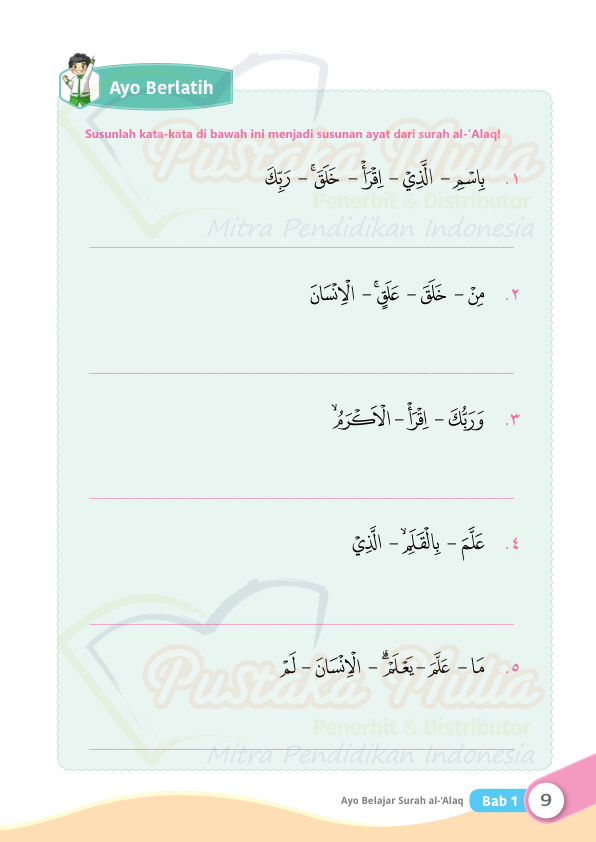 Ayo Berlatih
Susunlah kata-kata di bawah ini menjadi susunan ayat dari surah al-‘Alaq!
Pustaka Mulia
Penerbit & Distributor
Mitra Pendidikan Indonesia
١. بِاسْمِ – الَّذِيْ – اِقْرَأْ – خَلَقَۚ – رَبِّكَ
٢. مِنْ – خَلَقَ – عَلَقٍۚ – الْاِنْسَانَ
٣. وَرَبُّكَ – اِقْرَأْ – الْاَكْرَمُۙ
٤. عَلَّمَ – بِالْقَلَمِۙ – الَّذِيْ
٥. مَا – عَلَّمَ – يَعْلَمْۗ – الْاِنْسَانَ – لَمْ
Pustaka Mulia
Penerbit & Distributor
Mitra Pendidikan Indonesia
Ayo Belajar Surah al-‘Alaq Bab 1 9